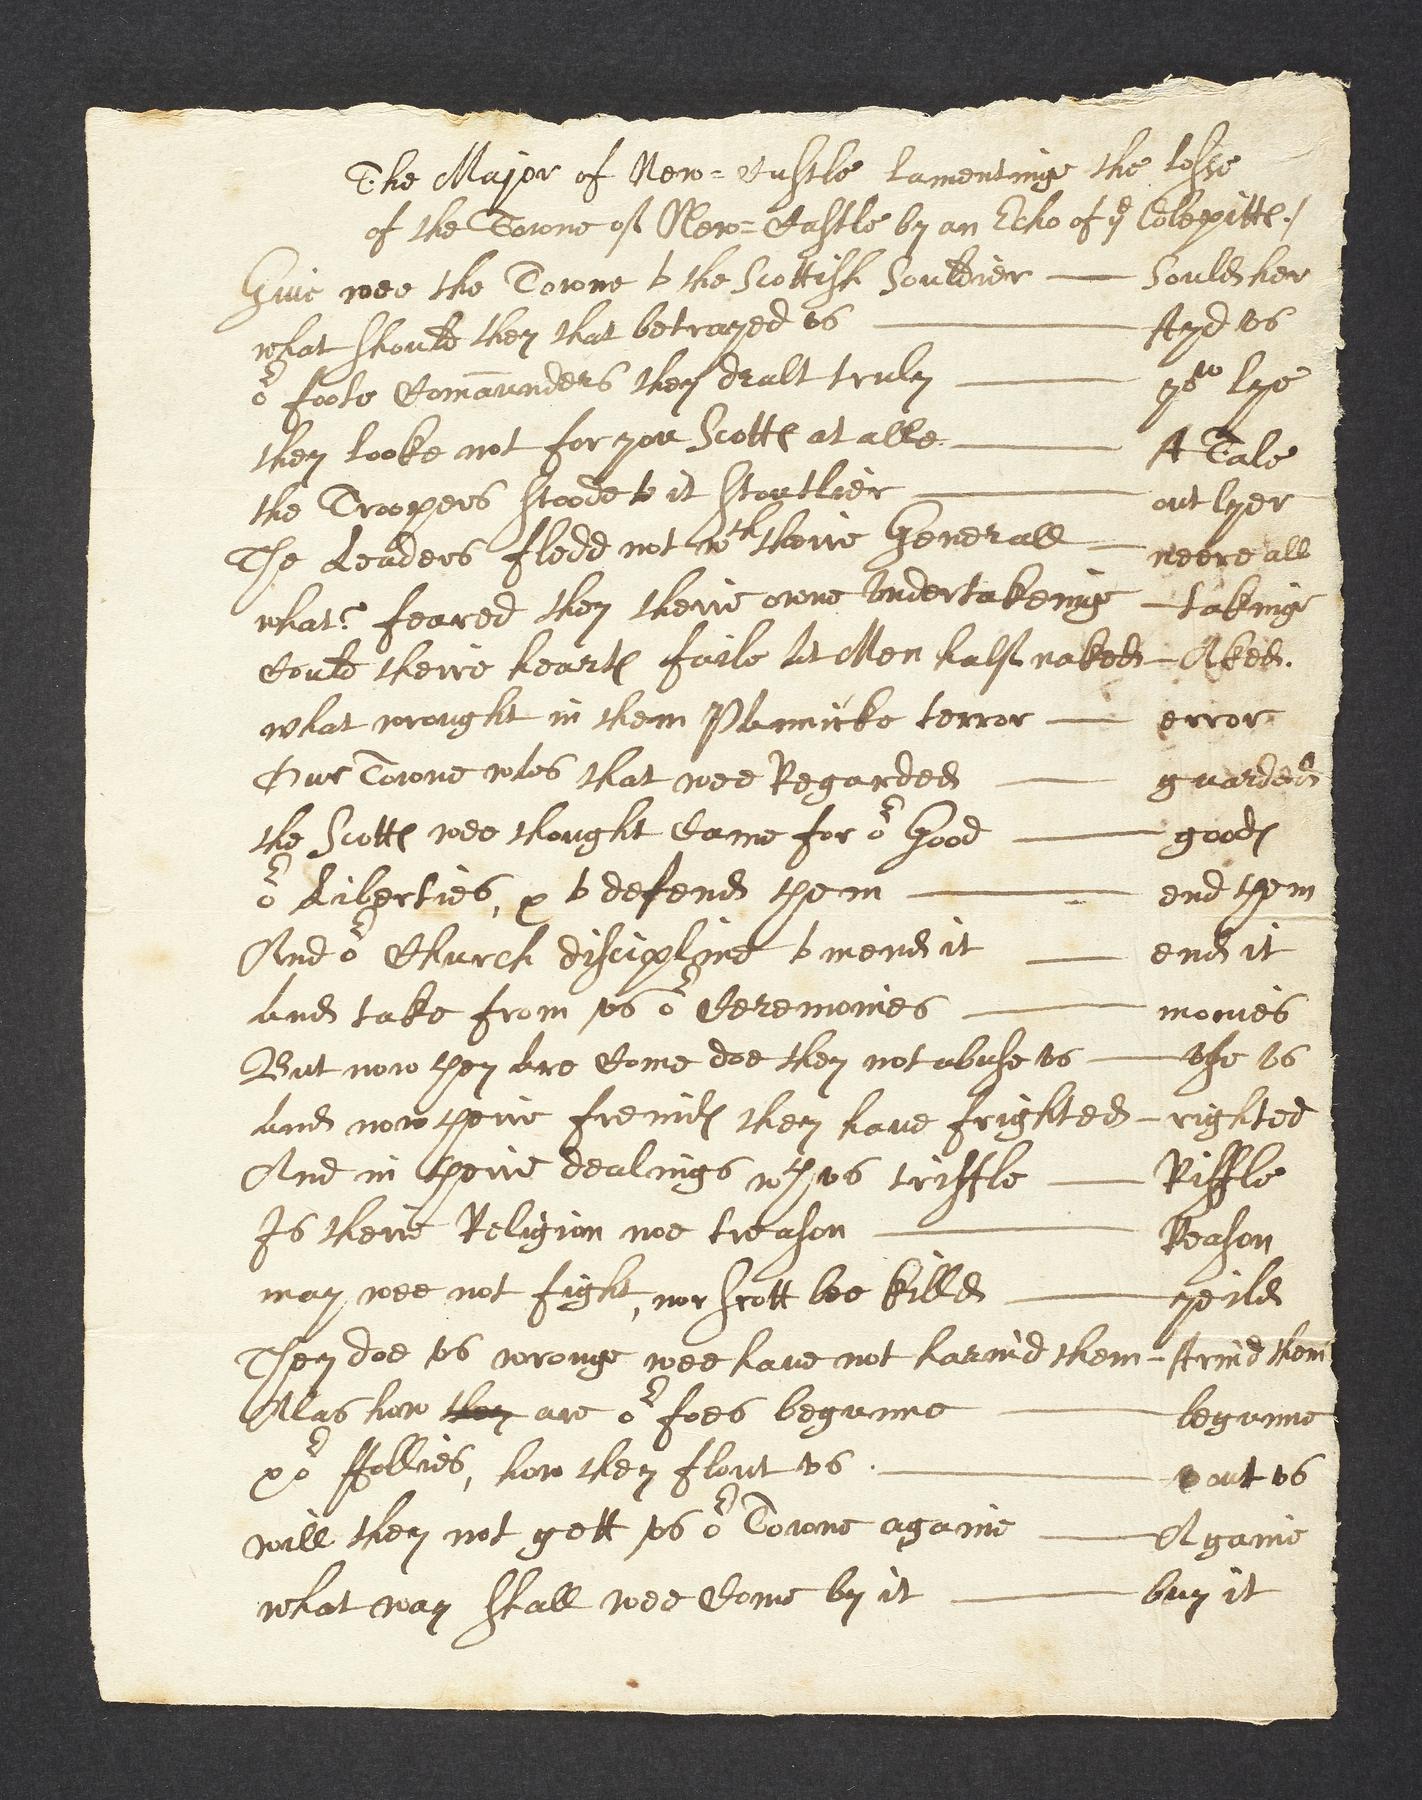 The Major of New=Castle lamentinge the losse
of the Towne of New=Castle by an Echo of yᵉ Colepitts./
Give wee the Towne to the Scottish Souldier — Sould her
what should they that betrayed vs — Ayd vs
oʳ foote Comaunders they dealt truly — lye
they looke not for you Scotts at alle — A Tale
the Troopers stoode to it stoutlier — out lyer
The Leaders fledd not wᵗʰ theire Generall — neere all
what? feared they theire owne Vndertakeinge — takinge
Could theire hearts faile at Men half naked — Aked.
what wrought in them Pannicke terror — error
Our Towne was that wee Regarded — guarded
the Scotts wee thought Came for oʳ Good — goods
oʳ Liberties, & to defend them — end them
And oʳ Church discipline to mend it — end it
And take from vs oʳ Ceremonies — monies
But now they are Come doe they not abuse vs — vse vs
And now theire freinds they have frighted — righted
And in theire dealings wᵗʰ vs triffle — Riffle
Is theire Religion noe treason — Reason
may wee not fight, nor Scott bee killd — yeild
They doe vs wronge wee have not harm'd them — Arm'd them
Alas how they are oʳ foes begunne — begunne
& oʳ ffollies, how they flout vs. — out vs
will they not gett vs oʳ Towne againe — A gaine
what way shall wee Come by it — buy it